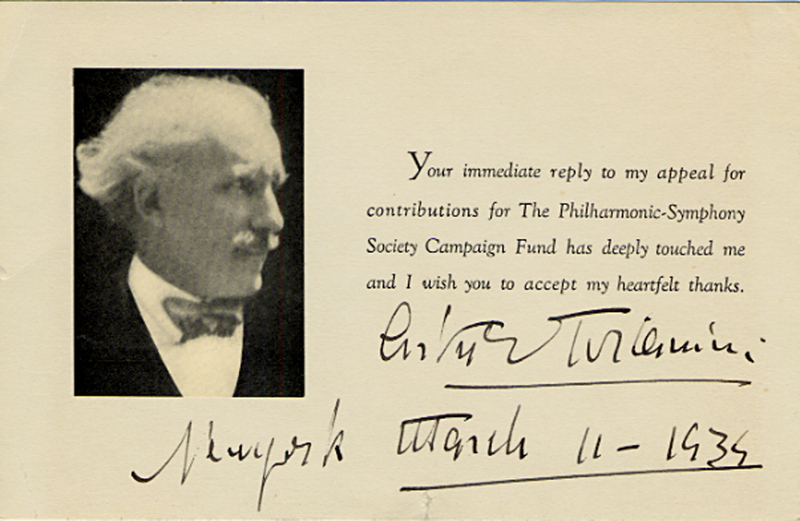 Your immediate reply to my appeal for
contributions for The Philharmonic-Symphony
Society Campaign Fund has deeply touched me
and I wish you to accept my heartfelt thanks.
Arturo Toscanini
New york March 11 – 1934